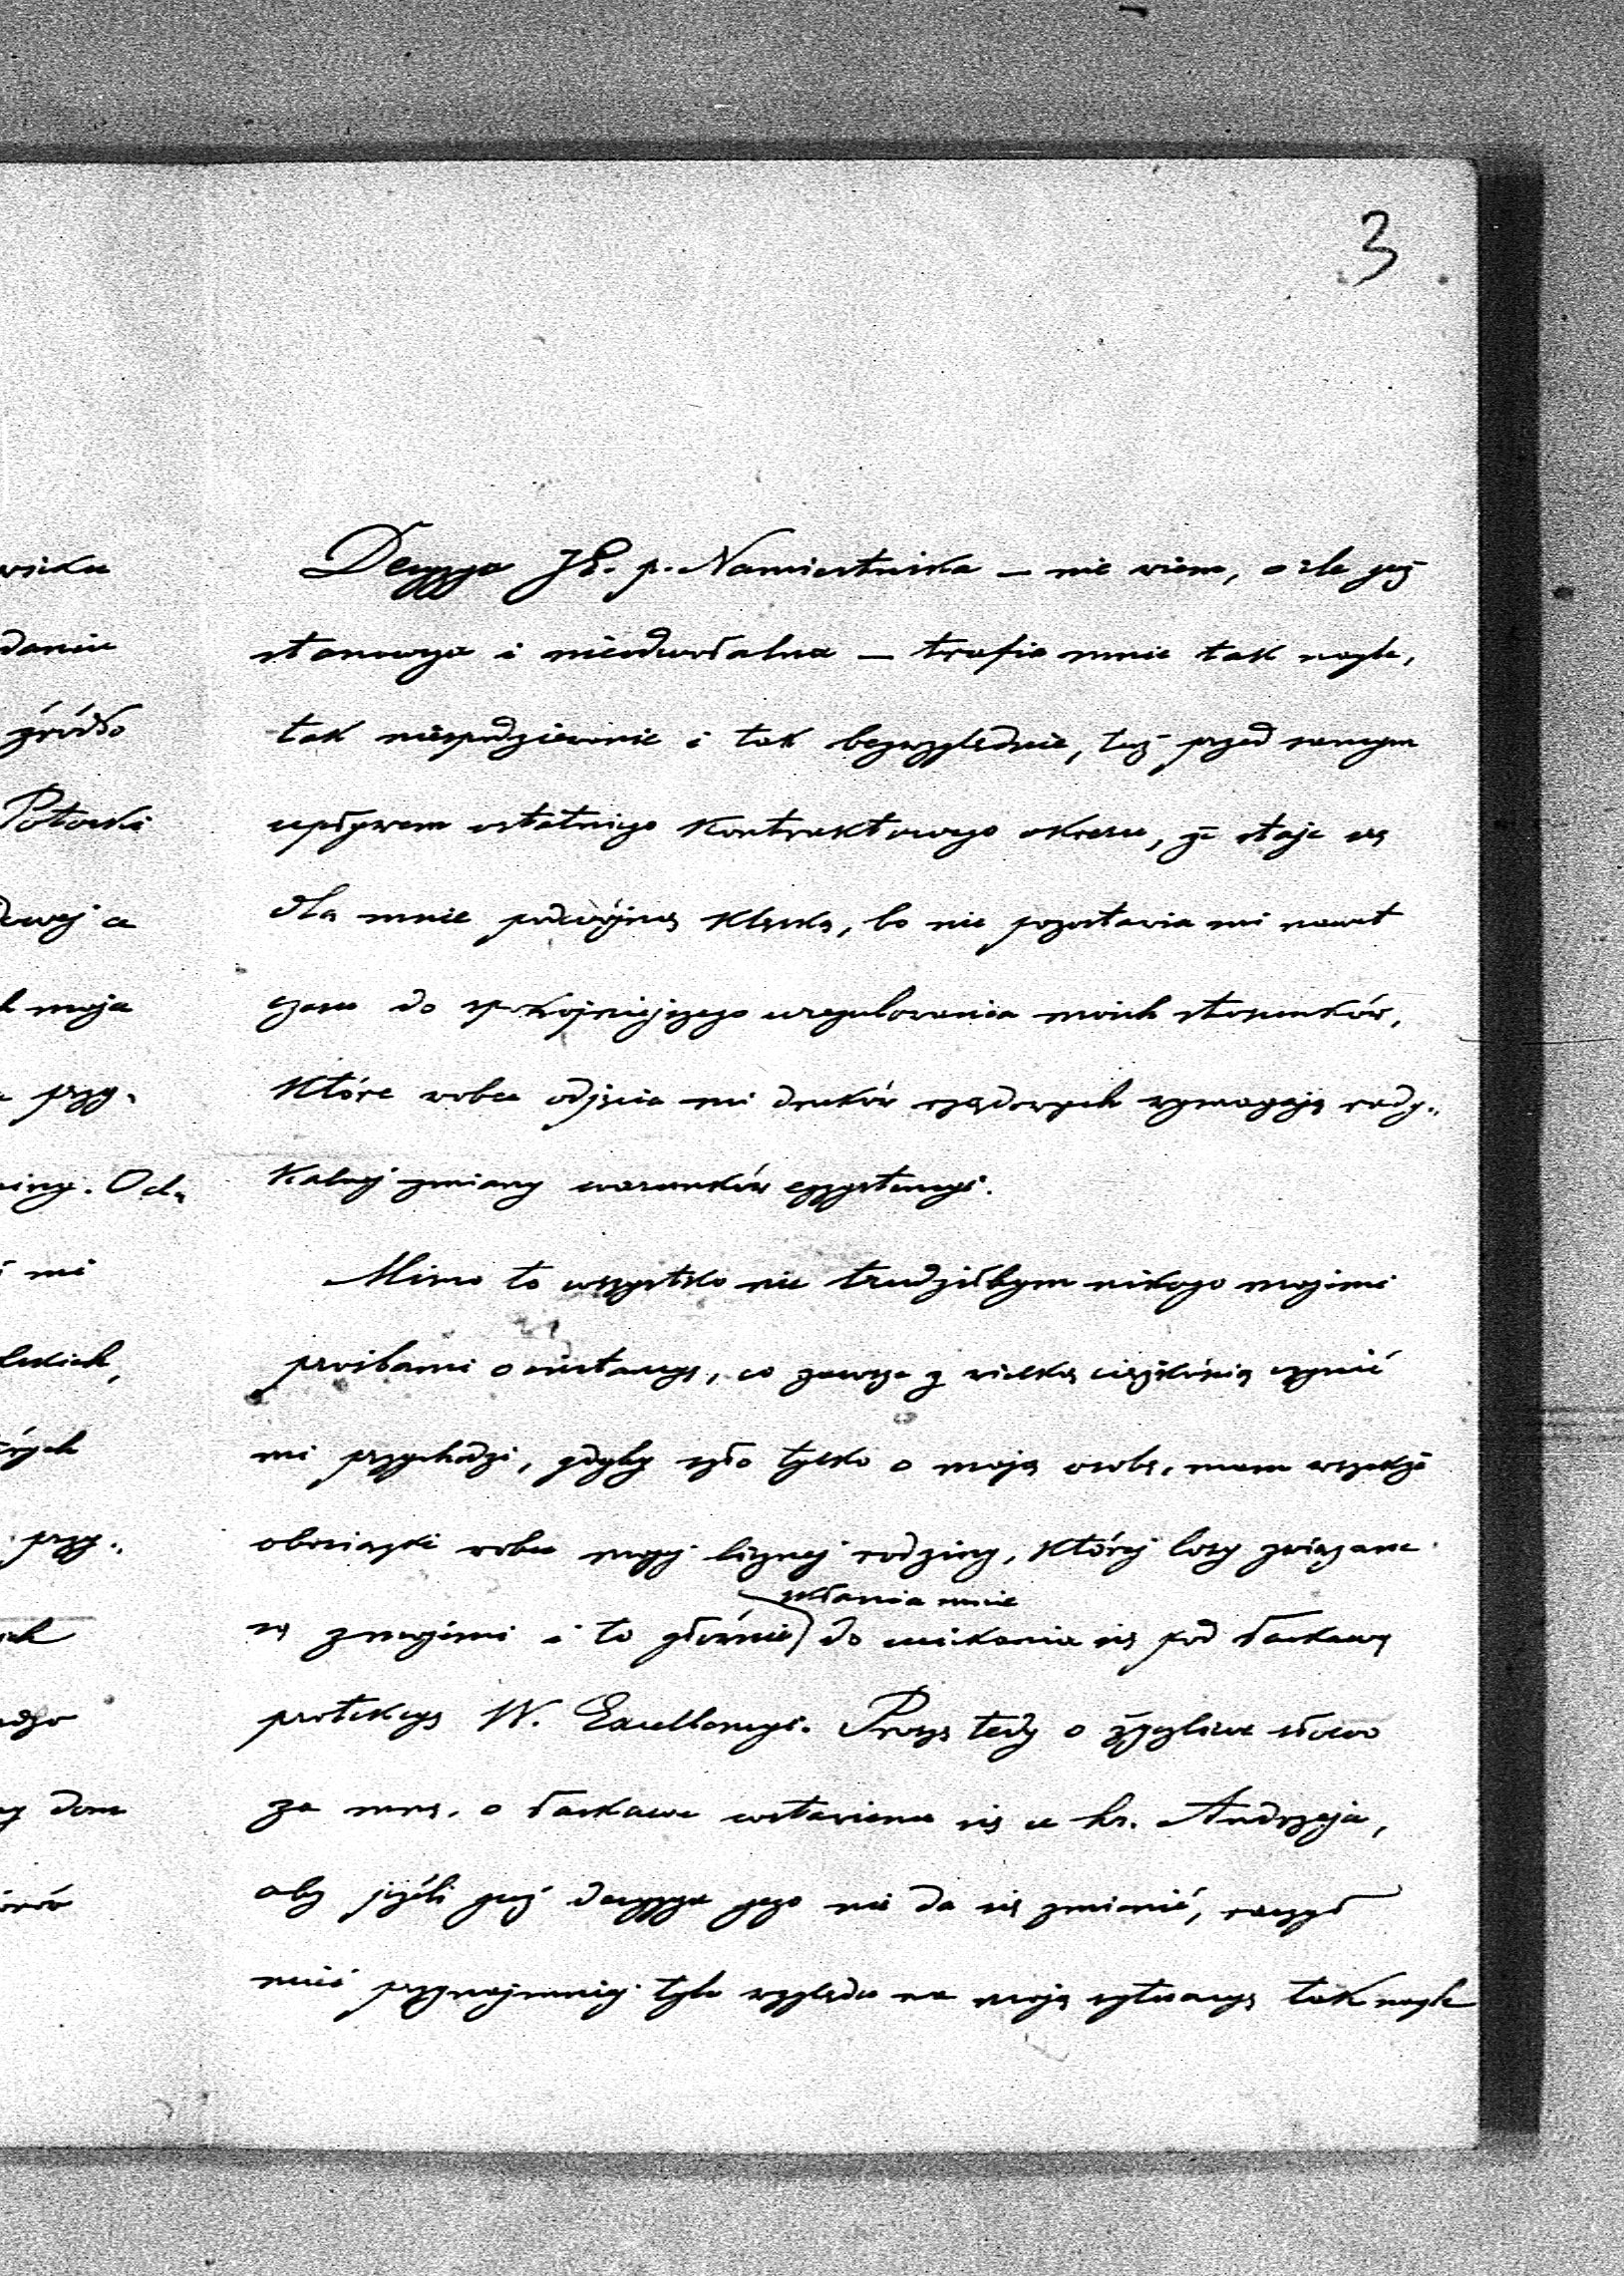 3
wsku
daniu
źródło
Potocki
dowej a
h moja
przy-
Od-
i mi
lskich,
tórych
przy-
ych
dzo
dom
Decyzya JE. p. Namiestnika — nie wiem, o ile już
stanowcza i nieodwołalna — trafia mnie tak nagle,
tak niespodziewanie i tak bezwzględnie, tuż przed samym
upływem ostatniego kontraktowego okresu, że staje się
dla mnie podwójną klęską, bo nie pozostawia mi nawet
czasu do spokojniejszego uregulowania moich stosunków,
które wobec odjęcia mi druków rządowych wymagają rady-
kalnej zmiany warunków egzystencyi.
Mimo to wszystko nie trudziłbym nikogo mojemi
prośbami o instancyę, co zawsze z wielką ciężkością czynić
mi przychodzi, gdyby szło tylko o moją osobę, mam wszakże
obowiązki wobec mojej licznej rodziny, której losy związane
skłania mnie
są z mojemi i to głównie do uciekania się pod łaskawą
protekcyę W. Excellencyi. Proszę tedy o życzliwe słowo
za mną, o łaskawe wstawienie się u hr. Andrzeja,
aby jeżeli już decyzya jego nie da się zmienić, raczył
mieć przynajmniej tyle względu na moją sytuacyę tak nagle